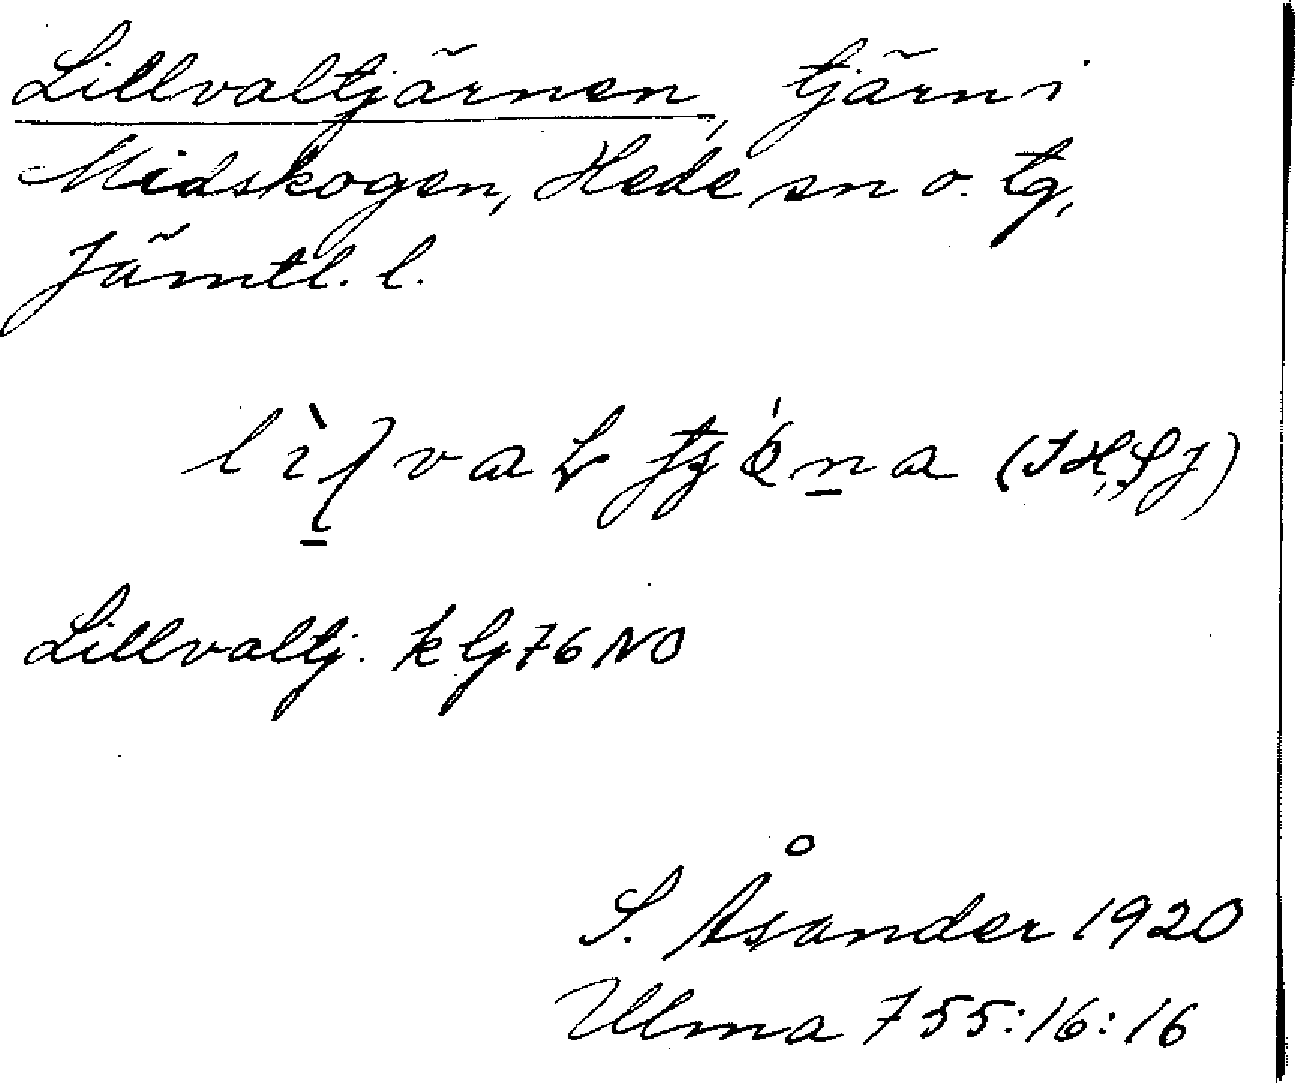 Lillvaltjärnen, tjärn i
Midskogen, Hede sn o. tg,
Jämtl. l.
Lillvaltj. k Lj 76 NO
S. Åsander 1920
Ulma 755:16:16